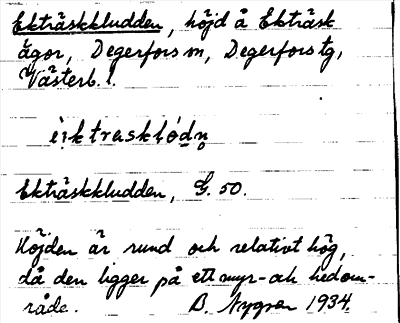 Ekträskkludden, höjd å Ekträsk
ägor, Degerfors sn, Degerfors tg,
Västerb. l.
Ekträskkludden, G. 50.
Höjden är rund och relativt hög,
då den ligger på ett myr- och hedom-
råde. B. Nygren 1934.